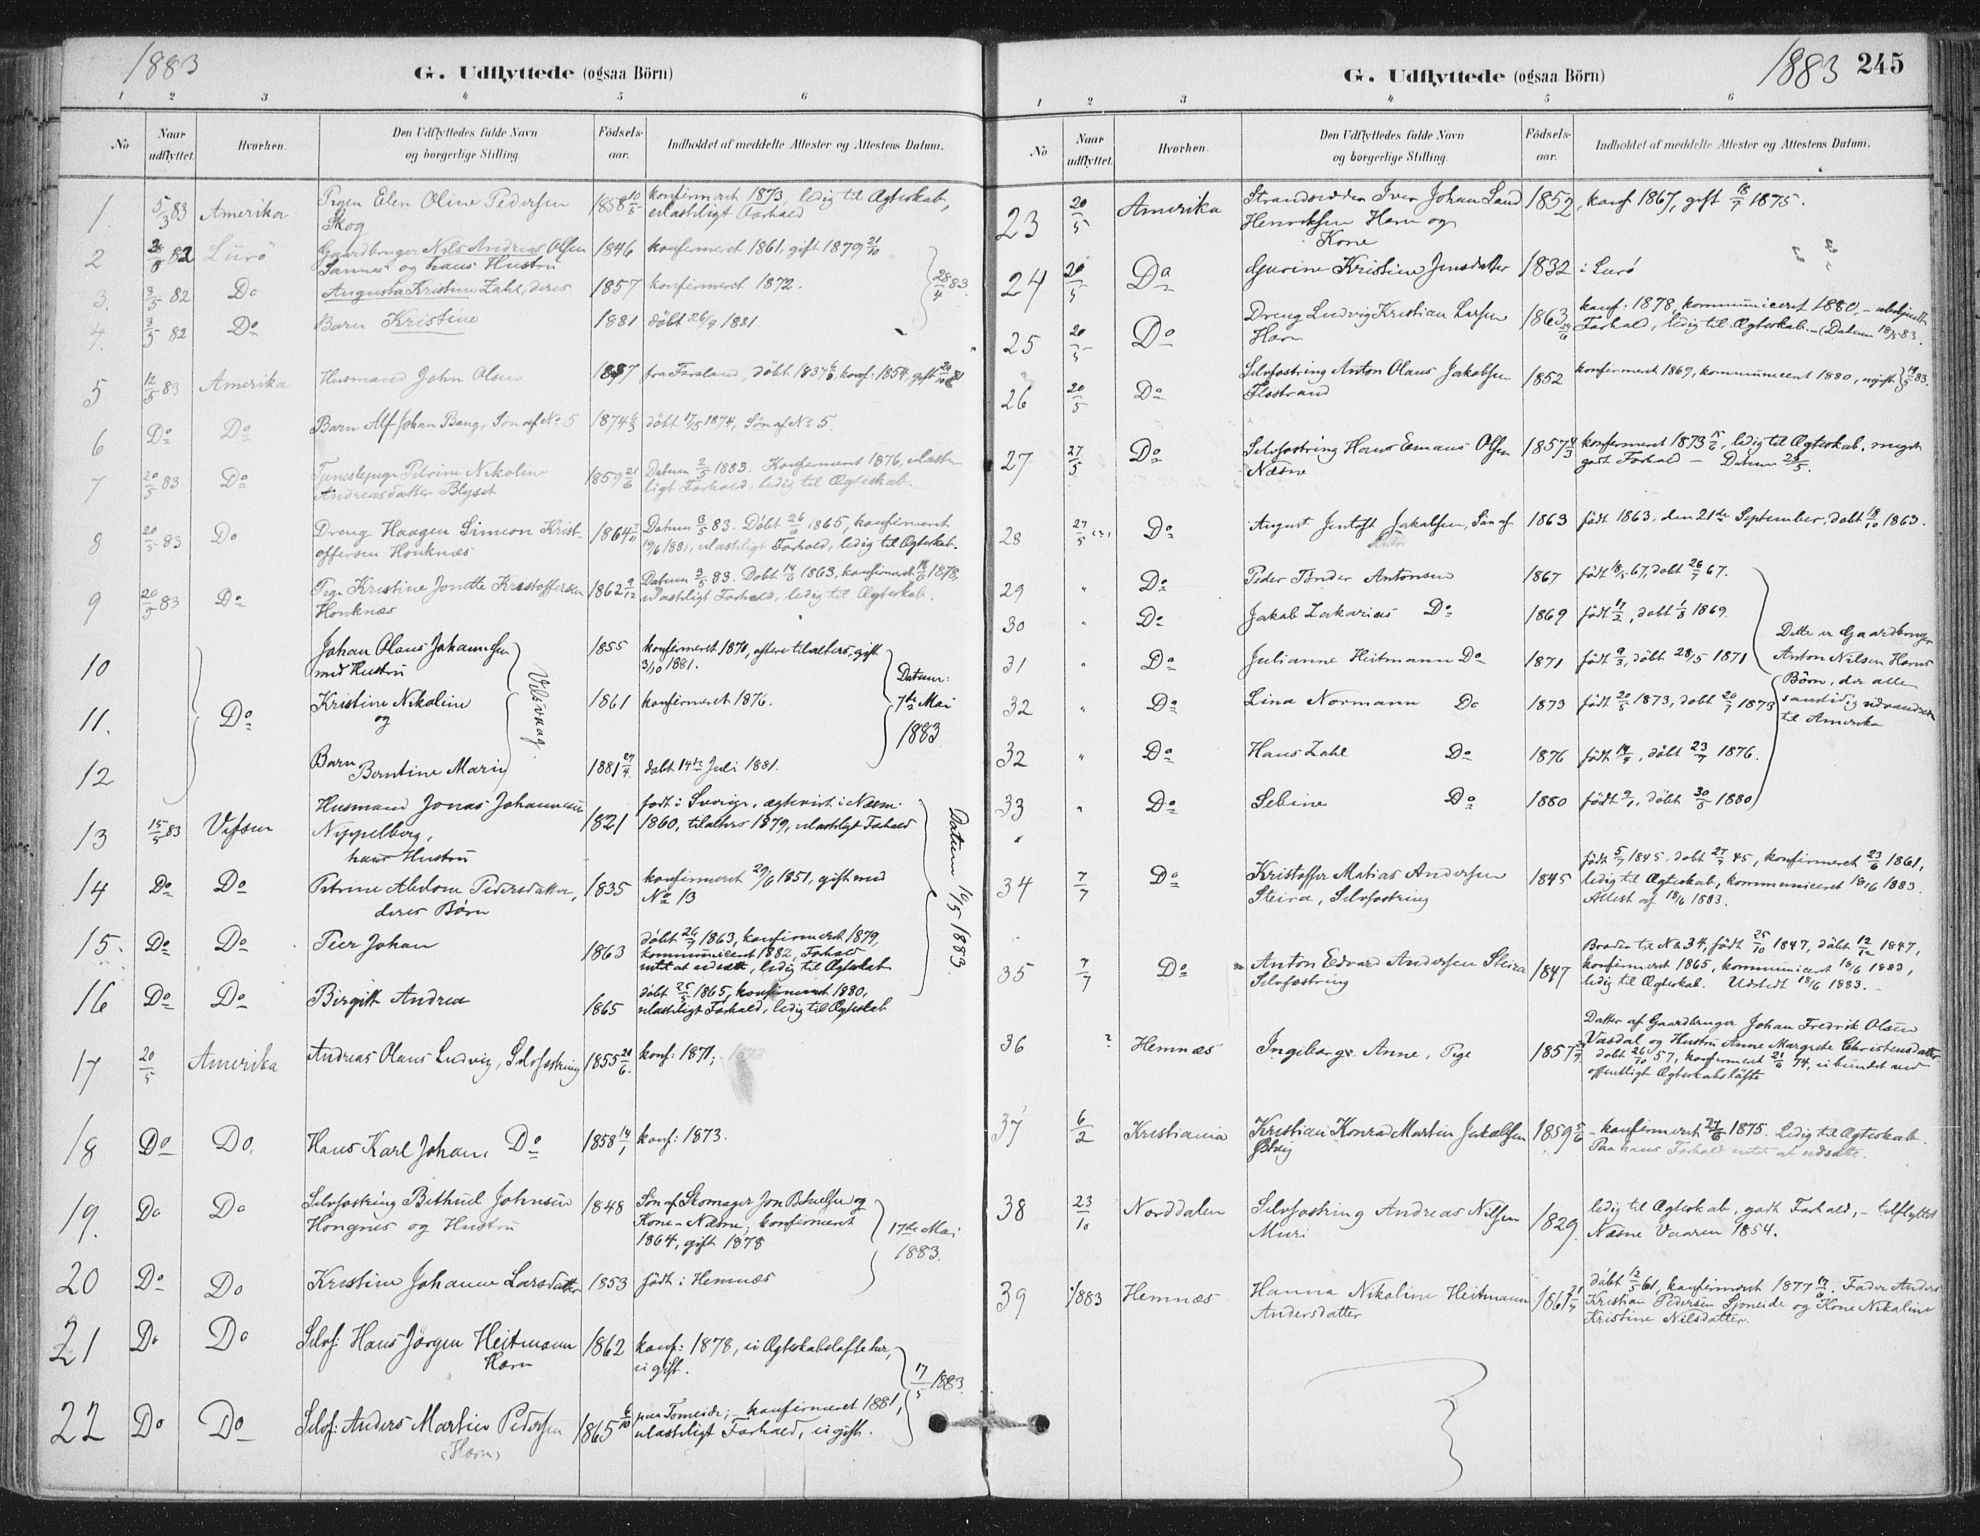 1883
G. Udflyttede (ogsaa Börn)
1 2 3 4 5 6
No
Naar udflyttet.
Hvorhen.
Den Udflyttedes fulde Navn og borgerlige Stilling.
Födsels-aar.
Indholdet af meddelte Attester og Attestens Datum.
1 5/3 83 Amerika Pigen Elen Oline Pedersen 1858 10/5 konfirmeret 1873, ledig til Ægteskab,
Skog ulasteligt Forhold
2 82 Lurö Gaardbruger Nils Andreas Olsen 1846 konfirmeret 1861, gift 1879 21/10
Sannes og hans Hustru
3. 3/5 82 Do Augusta Kristine Zahl, deres 1857 konfirmeret 1872. 28/4 83.
4. 3/5 82 Do Barn Kristine 1881 döbt 26/9 1881.
5 12/5 83 Amerika Husmand John Olsen 1837 döbt 1837, konf. 1854, gift
6 Do Do Barn Alf Johan Bang, Sön af No 5 1874 döbt 17/5 1874, Sön af No 5.
7 20/5 83 Do Tjenestepige Petrine Nikoline 1859 21/6 Datum 2/5 1883. Konfirmeret 1876, ulaste-
Andreasdatter Blyset ligt Forhold, ledig til Ægteskab.
8 20/5 83 Do Dreng Haagen Simeon Krist- 1864 Datum 3/5 83. Döbt 26/ 1865, konfirmeret
offersen Honknæs 19/6 1881, ulasteligt Forhold, ledig til Ægteskab.
9 20/5 83 Do Pige Kristine Jonette Kristoffersen 1862 9/12 Datum 3/5 83. Döbt 1863, konfirmeret 1878,
Honknæs ulasteligt Forhold, ledig til Ægteskab.
10 Johan Olaus Johannessen 1855 konfirmeret 1870, oftere tilalters, gift
med Hustru 3/10 1881.
11. Do Kristine Nikoline 1861 konfirmeret 1876.
og
Vilsvaag
Datum: 7de Mai 1883
12 Barn Berntine Marie 1881 27/4. döbt 14de Juli 1881.
13 15/5 83 Vefsen Husmand Jonas Johannesen 1821 født i Sverige, ægteviet i Næsne
Nippelberg, 1860, tilalters 1879, ulasteligt Forhold
hans Hustru
14 Do Do Petrine Abelone Pedersdatter, 1835 konfirmeret 29/6 1851, gift med
deres Börn No 13
15. Do Do Peer Johan 1863 döbt 26/7 1863, konfirmeret 1879,
kommuniceret 1882, Forhold
intet at udsætte, ledig til Ægteskab
16 Do Do Birgitte Andrea 1865 döbt 25/5 1865, konfirmeret 1880,
ulasteligt Forhold, ledig til Ægteskab
Datum 16/5 1883.
17 20/5 Amerika Andreas Olaus Ludvig, Selvfostring 1855 20/6. konf: 1871,
18 Do Do. Hans Karl Johan, Do 1858 14/1 konf: 1873.
19. Do Do Selvfostring Bethuel Johnsen 1848 Sön af Skomager Jon Betuelsen og
Hongnes og Hustru Kone – Næsne; konfirmeret
1864, gift 1878
17de Mai 1883.
20 Do Do Kristine Johanne Larsdatter 1853 født i Hemnæs
21 Do Do Selvf: Hans Jörgen Heitmann 1862 konf: 1878, ei Ægteskabslöfte her,
Horn ei gift.
22 Do Do Selvf: Anders Martin Pedersen 1865 6/10 paa Tomeide; – konfirmeret 1881,
(Horn) ulasteligt Forhold, ei gift.
17/5 1883.
1883 245
G. Udflyttede (ogsaa Börn)
1 2 3 4 5 6
No
Naar udflyttet.
Hvorhen.
Den Udflyttedes fulde Navn og borgerlige Stilling.
Födsels-aar.
Indholdet af meddelte Attester og Attestens Datum.
23 20/5 Amerika Strandsidder Iver Johan Lund 1852, konf 1867, gift 18/7 1875.
Henriksen Horn og
Kone
24 20/5 Do Gurine Kristine Jensdatter 1832 i Lurö
25 20/5 Do Dreng Ludvig Kristian Larsen 1863 konf: 1878, kommuniceret 1880, –
Horn Forhold, ledig til Ægteskab – (Datum 18/5 83.
26 20/5 Do Selvfostring Anton Olaus Jakobsen 1852 konfirmeret 1869, kommuniceret 1880, ugift 83.
Flostrand
27 27/5 Do Selvfostring Hans Emaus Olsen 1857 4/3 konfirmeret 1873 15/6, ledig til Ægteskab, meget
Næsne godt Forhold – Datum 23/5.
28 27/5 Do August Jentoft Jakobsen, Sön af 1863 född 1863, den 21de September, döbt 18/10 1863.
29 " Do Peder Tönder Antonsen 1867 født 18/5 67, döbt 28/7 67.
30 " Do Jakob Zakarias Do 1869 født 17/2, döbt 1/8 1869.
31 " Do Julianne Heitmann Do 1871 født 9/3, döbt 28/5 1871
32 " Do Lina Normann Do 1873 født 20/5 1873, döbt 20/7 1873
32 " Do Hans Zahl Do 1876 født, döbt 23/7 1876.
33 " Do Sebine Do 1880 født, döbt 30/5 1880
Dette er Gaardbruger
Anton Nilsen Horns
Börn, der alle
samtidig udvandrede
til Amerika
34 7/7 Do Kristoffer Matias Andersen 1845 født 5/7 1845. döbt 27/7 45, konfirmeret 23/6 1861,
Steira, Selvfostring ledig til Ægteskab, kommuniceret 18/6 1883.
Attest af 18/6 1883.
35 7/7 Do Anton Edvard Andersen Steira 1847 Broder til No 34, født 25/10 1847, döbt 12/12 1847,
Selvfostring konfirmeret 1865, kommuniceret 18/6 1883,
ledig til Ægteskab. Udstedt 18/6 1883. –
36 ? Hemnæs Ingeborg Anne, Pige 1857 Datter af Gaardbruger Johan Fredrik Olsen
Vasdal og Hustru Anne Margrete Christensdatter
döbt 26/10 57, konfirmeret 21/6 74, ei bundet ved
offentligt Ægteskabslöfte
37 6/2 Kristiania Kristian Konrad Martin Jakobsen 1859 5/6 – konfirmeret 27/6 1875. Ledig til Ægteskab.
Østvig Paa hans Forhold intet at udsætte.
38 23/10 Norddalen Selvfostring Andreas Nilsen 1829. ledig til Ægteskab, godt Forhold, – tilflyttet
Muri Næsne Vaaren 1854.
39 1/883 Hemnæs Hanna Nikoline Heitmann 1861 döbt 12/5 61, konfirmeret 1877 17/6. Fader Anders
Andersdatter Kristian Pedersen Sjoneide og Kone Nikoline
Kristine Nilsdatter.